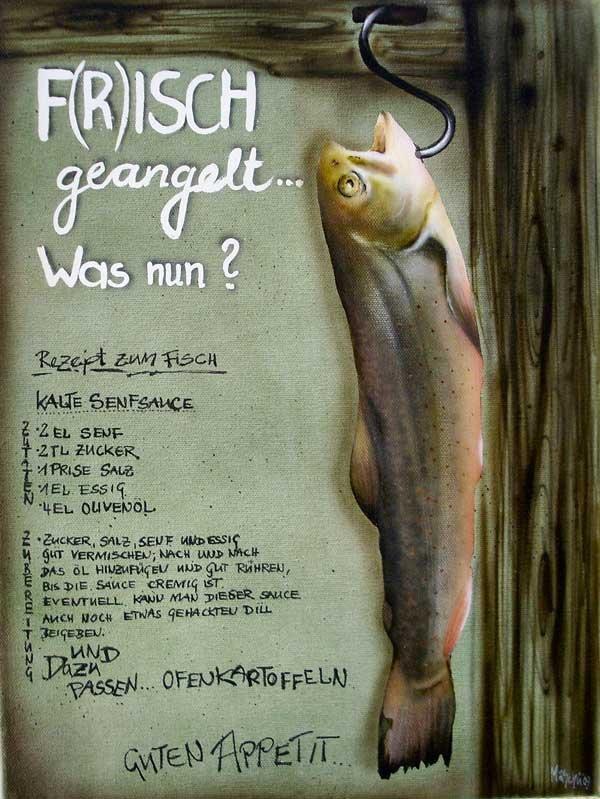 F(R)ISCH
geangelt...
Was nun?
Rezept zum Fisch
KALTE SENFSAUCE
ZUTATEN
·2 EL SENF
·2TL ZUCKER
·1 PRISE SALZ
·1 EL ESSIG
·4EL OLIVENÖL
ZUBEREITUNG
·ZUCKER, SALZ, SENF UND ESSIG
GUT VERMISCHEN; NACH UND NACH
DAS ÖL HINZUFÜGEN UND GUT RÜHREN,
BIS DIE SAUCE CREMIG IST.
EVENTUELL KANN MAN DIESER SAUCE
AUCH NOCH ETWAS GEHACKTEN DILL
BEIGEBEN.
UND
DAZU
PASSEN... OFENKARTOFFELN
GUTEN APPETIT...